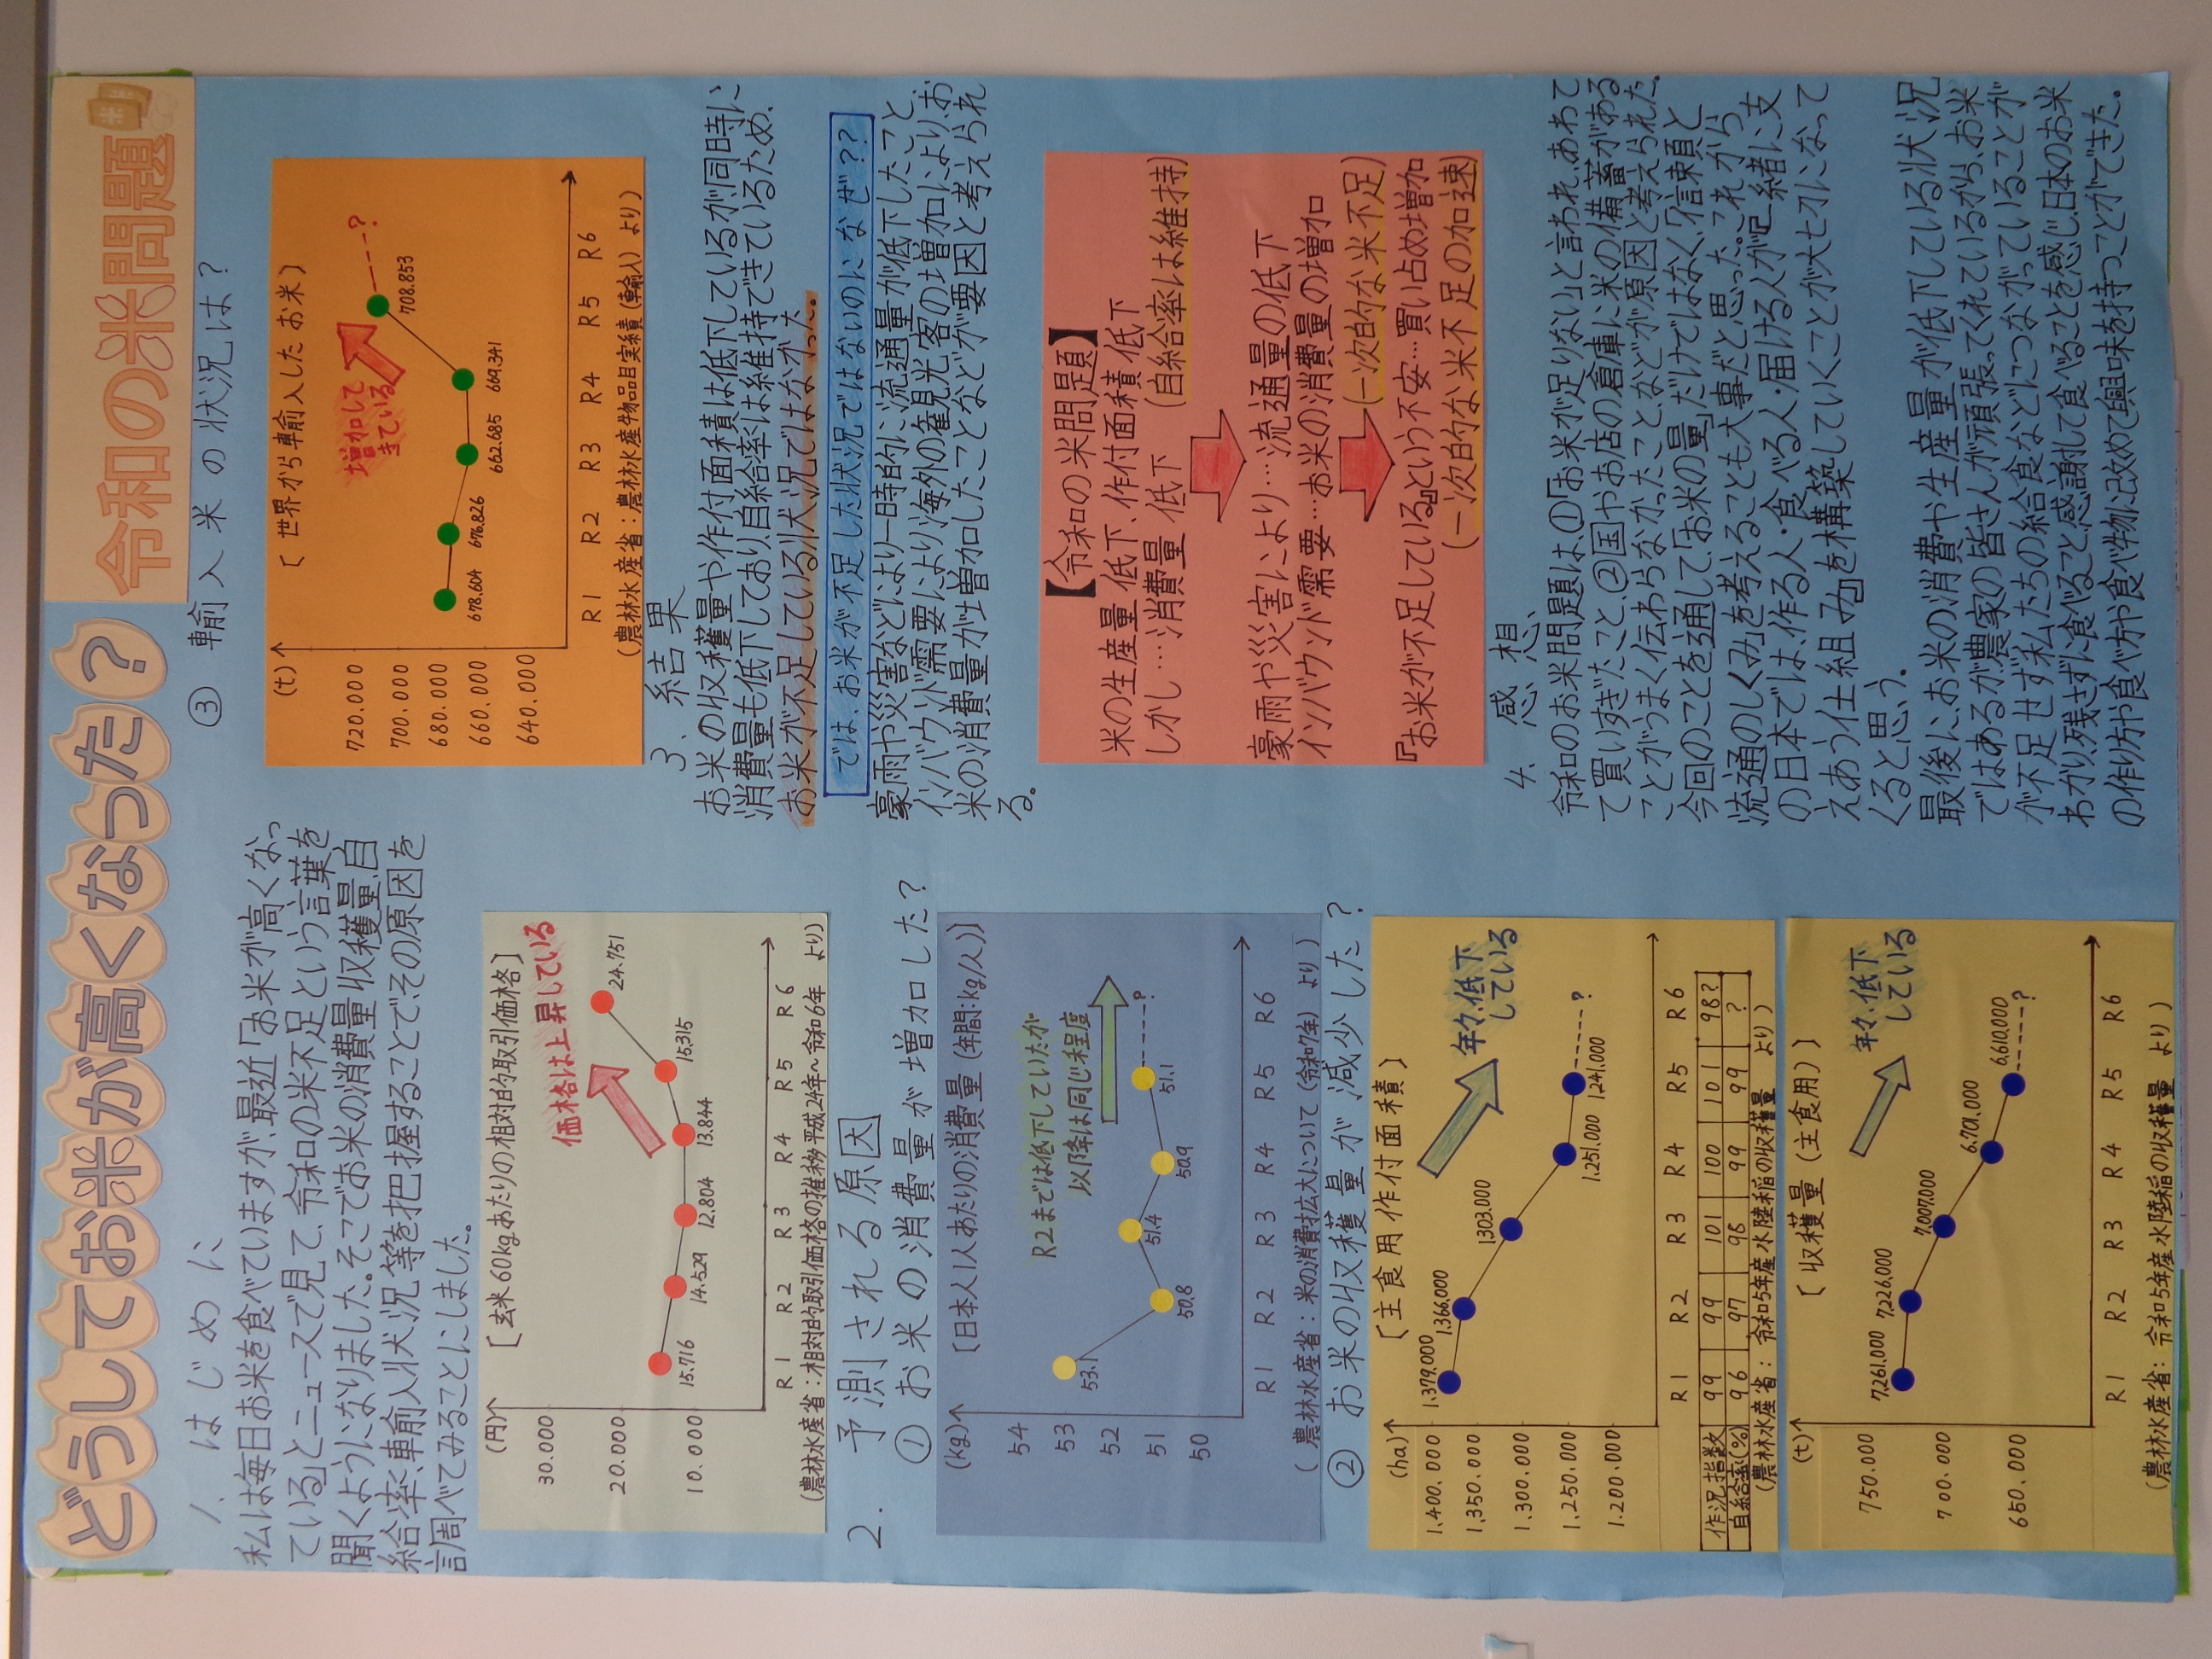 どうしてお米が高くなった?
令和の米問題
米
1. はじめに
私は毎日お米を食べていますが、最近「お米が高くなっ
ている」とニュースで見て、令和の米不足という言葉を
聞くようになりました。そこでお米の消費量、収穫量、自
給合率、輸入状況等を把握することで、その原因を
調べてみることにしました。
[玄米60kgあたりの相対的取引価格]
(円)
30.000
20.000
10.000
価格は上昇している
15.716
14.529
12.804
13.844
15.315
24.751
R1 R2 R3 R4 R5 R6
(農林水産省:相対的取引価格の推移平成24年~令和6年 より)
2. 予測される原因
① お米の消費量が増加した?
[日本人1人あたりの消費量(年間:kg/人)]
(kg)
54
53
52
51
50
R2までは低下していたが
以降は同じ程度
53.1
50.8
51.4
50.9
51.1
?
R1 R2 R3 R4 R5 R6
(農林水産省:米の消費拡大について(令和7年)より)
② お米の収穫量が減少した?
[主食用作付面積]
(ha)
1.400.000
1.350.000
1.300.000
1.250.000
1.200.000
年々、低下
している
1.379.000
1.366.000
1.303.000
1.251.000
1.241.000
?
R1 R2 R3 R4 R5 R6
作況指数 99 99 101 100 101 98?
自給合率(%) 96 97 98 99 99 ?
(農林水産省:令和5年産水陸稲の収穫量 より)
[収穫量(主食用)]
(t)
750.000
700.000
650.000
年々、低下
している
7,261.000
7,226.000
7,007.000
6,701.000
6,610.000
?
R1 R2 R3 R4 R5 R6
(農林水産省:令和5年産水陸稲の収穫量 より)
③ 輸入米の状況は?
[世界から輸入したお米]
(t)
720.000
700.000
680.000
660.000
640.000
増加して
きている
678.604
676.826
662.685
669.341
708.853
?
R1 R2 R3 R4 R5 R6
(農林水産省:農林水産物品目実績(輸入)より)
3. 結果
お米の収穫量や作付面積は低下しているが、同時に
消費量も低下しており、自給合率は維持できているため、
お米が不足している状況ではなかった。
では、お米が不足した状況ではないのになぜ??
豪雨や災害などにより一時的に流通量が低下したこと、
インバウンド需要により海外の観光客の増加により、お
米の消費量が増加したことなどが要因と考えられ
る。
【令和の米問題】
米の生産量 低下、作付面積 低下
しかし…消費量 低下 (自給合率は維持)
豪雨や災害により…流通量の低下
インバウンド需要…お米の消費量の増加
(一次的な米不足)
『お米が不足している』という不安…買い占め増加
(一次的な米不足の加速)
4. 感想
令和のお米問題は、①「お米が足りない」と言われ、あわて
て買いすぎたこと、②国やお店の倉庫に米の備蓄がある
ことがうまく伝わらなかったこと、などが原因と考えられた。
今回のことを通して、「お米の量」だけではなく、「信頼と
流通のしくみ」を考えることも大事だと思った。これから
の日本では、作る人・食べる人・届ける人が『一緒に支
えあう仕組み』を構築していくことが大セカになって
くると思う。
最後に、お米の消費や生産量が低下している状況
ではあるが、農家の皆さんが頑張ってくれているから、お米
が不足せず私たちの給食などにつながっていることが
わかり、残さずに食べること、感謝して食べることを感じ、日本のお米
の作り方や食べ方や食べ物に改めて興味を持つことができた。